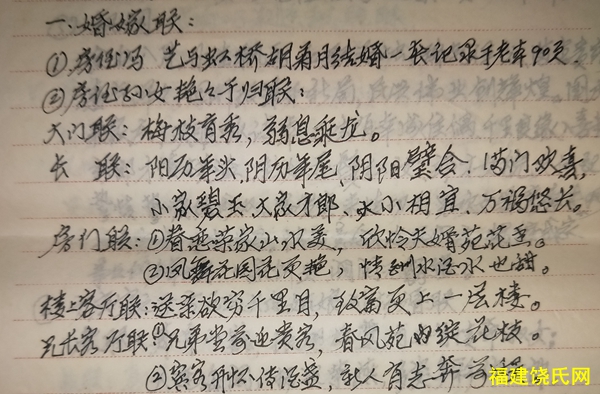 一.婚嫁联：
①房侄冯 艺与虹桥胡菊月结婚一套记录于老本90页.
②房侄孙女艳々于归联：
大门联：梅枝育秀，弱息乘龙。
长 联：阳历年头,阴历年尾、阴阳璧合、满门欢喜,
小家碧玉、大家才郎、大小相宜、万福悠长。
房门联：①春来荣家山水美，欣怜夫婿苑花玉。
②凤舞花园花更艳，情到水泡水也甜。
楼上客厅联：送亲欲穷千里目，致富更上一层楼。
兄长客厅联①兄弟堂前迎贵客，春风苑内绽花枝。
②宾客开怀传盏，新人有志奔前程。
福建饶氏网